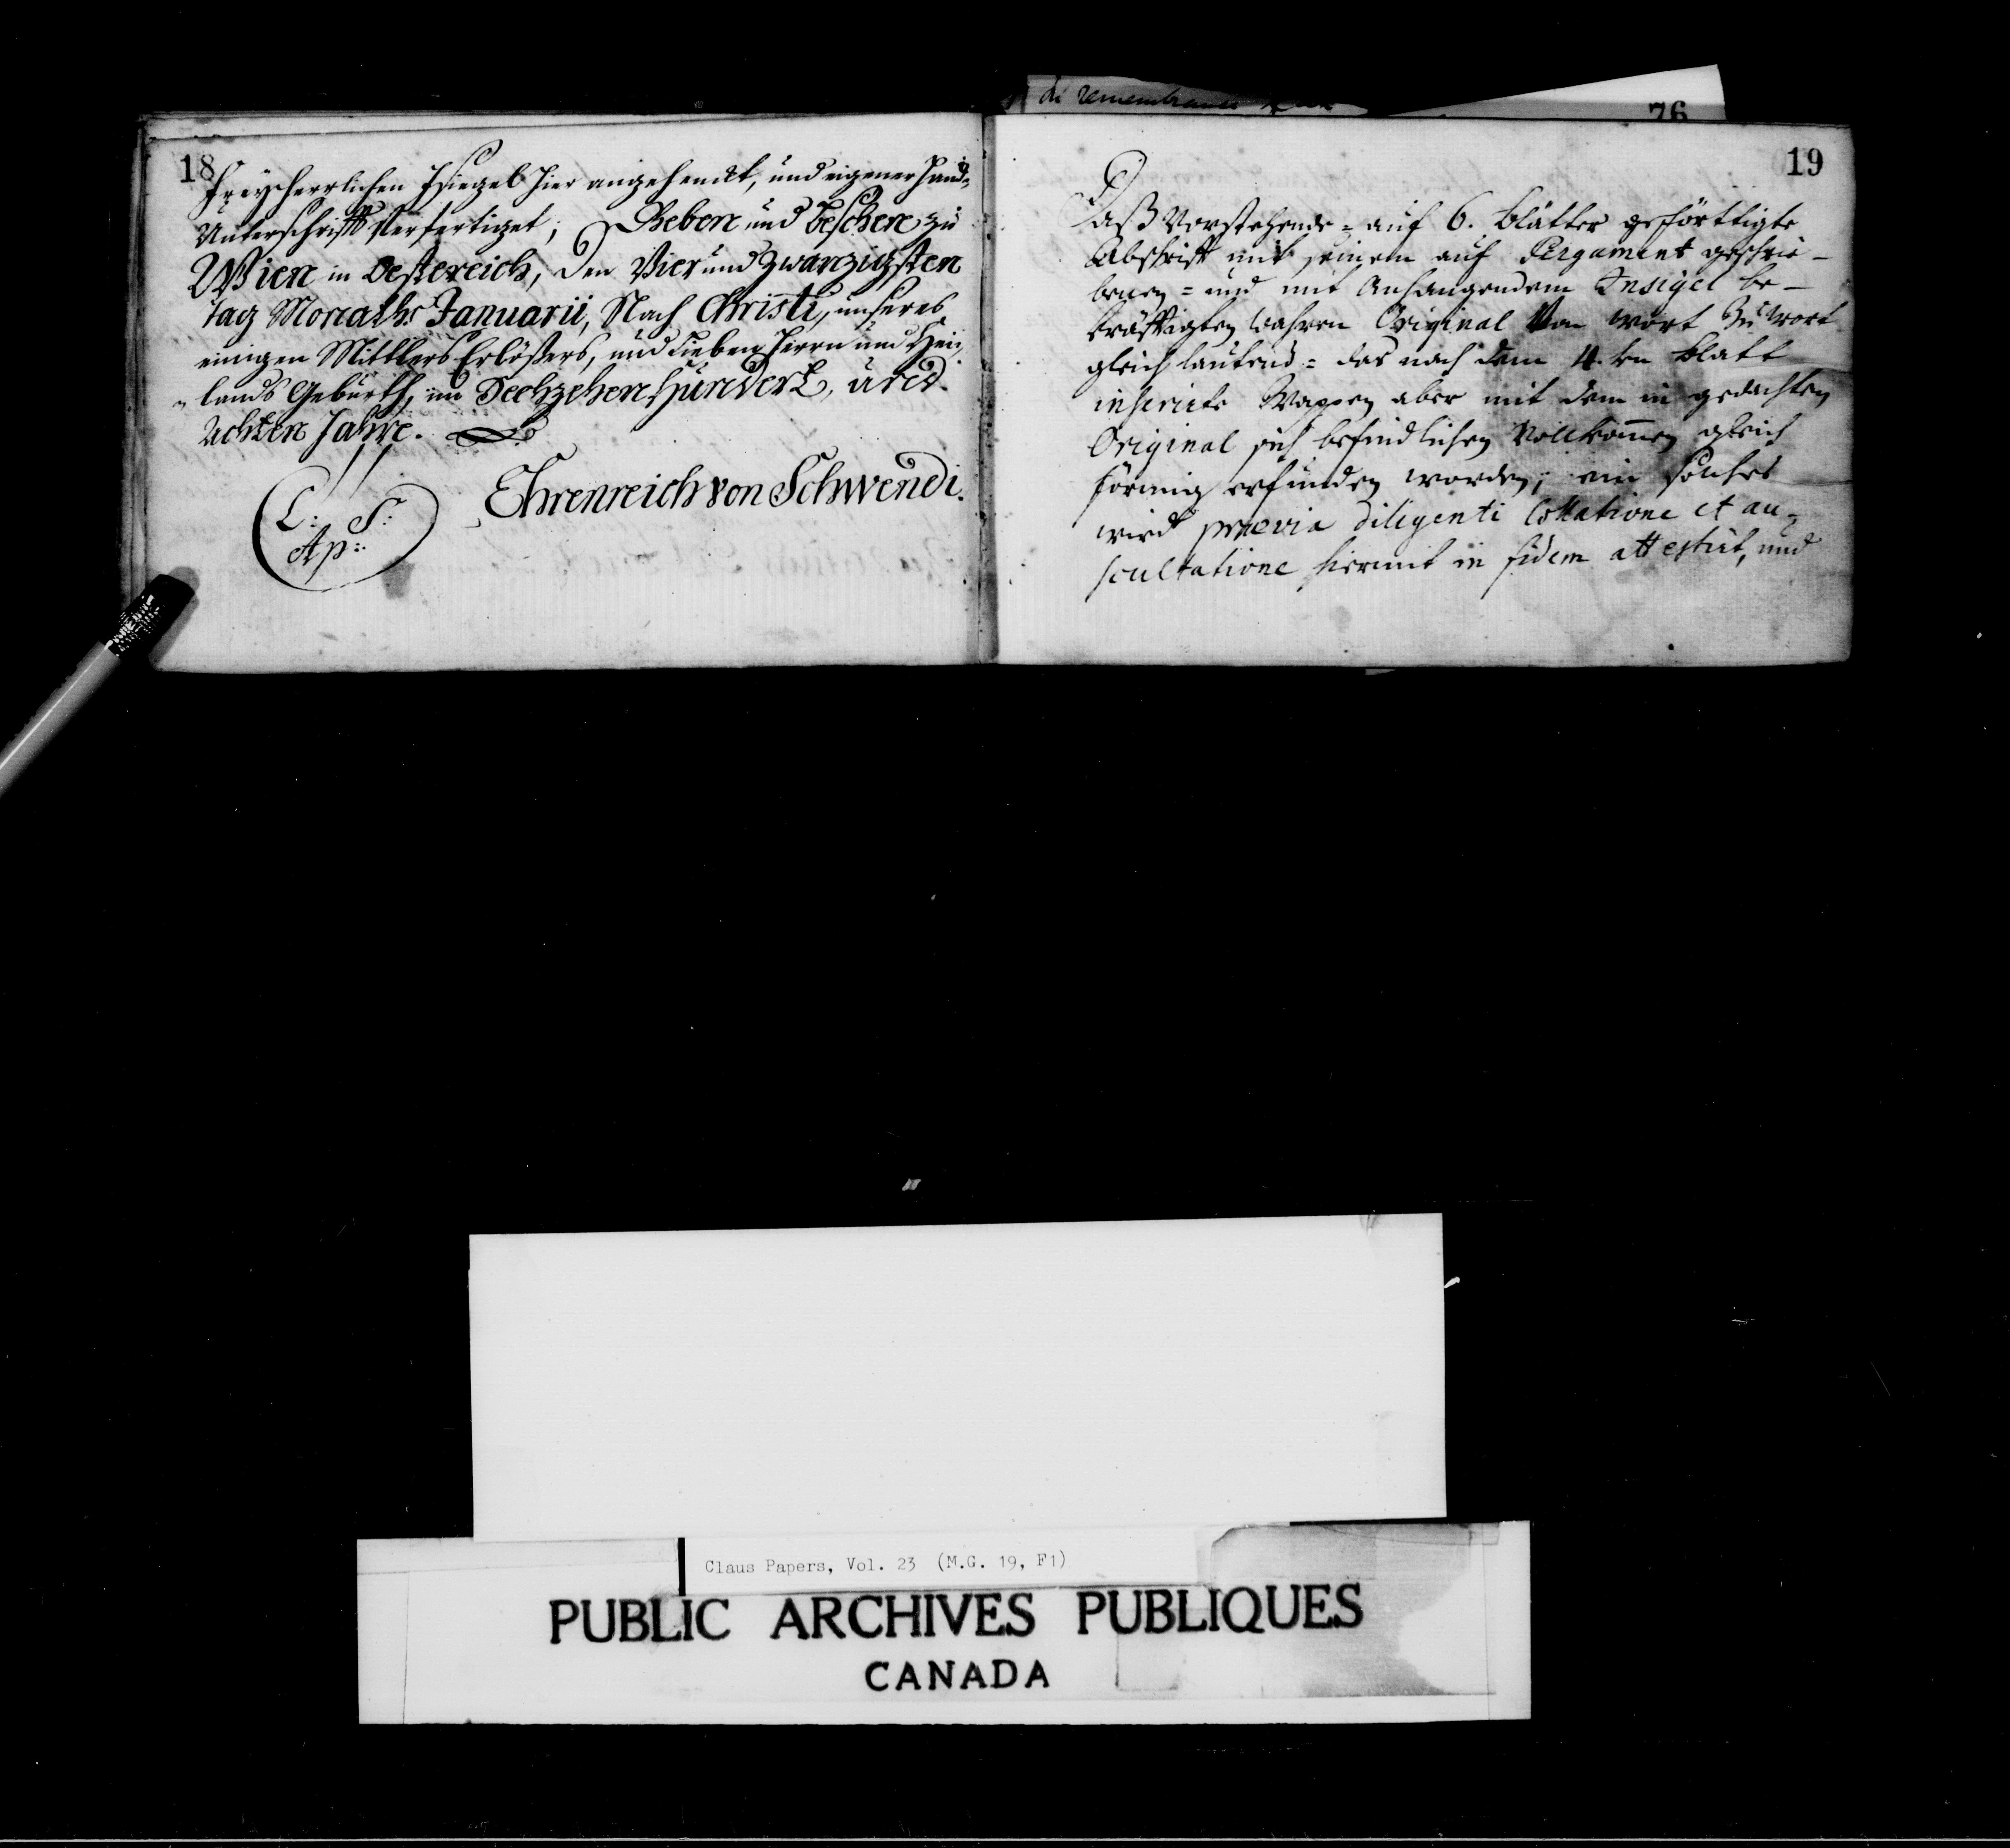 de remembrance
76
18
freyherrlichen Insiegel hier angehenckt, und eigener Hand-
Unterschrifft verfertiget; Geben und beschehen zu
Wien in Oestereich, den Vier und zwanzigsten
tag Monaths Januarii, Nach Christi, unseres
einigen Mittlers Erlößers, und Lieben Herrn und Hei-
lands Geburth, im Sechzehen hundert, und
Achten Jahre.
L: S:
Ap:
Ehrenreich von Schwendi.
19
Daß Vorstehende = auf 6. Blätter geförttigte
Abschrifft mit seinem auf Pergament geschrie-
benen = und mit Anhangendem Insigel be-
kräfftigten wahren Original Von wort Zu wort
gleich lautend = das nach dem 4.ten Blatt
inserirte Wappen aber mit dem in gedachten
Original sich befindlichen Vollkomen gleich
förmig erfunden worden; ein solches
wird praevia diligenti Collatione et au-
scultatione hiermit in fidem attestirt, und
Claus Papers, Vol. 23 (M.G. 19, F1)
PUBLIC ARCHIVES PUBLIQUES
CANADA